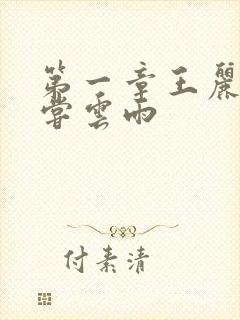 第一章王麗
嘗雲雨
付素清